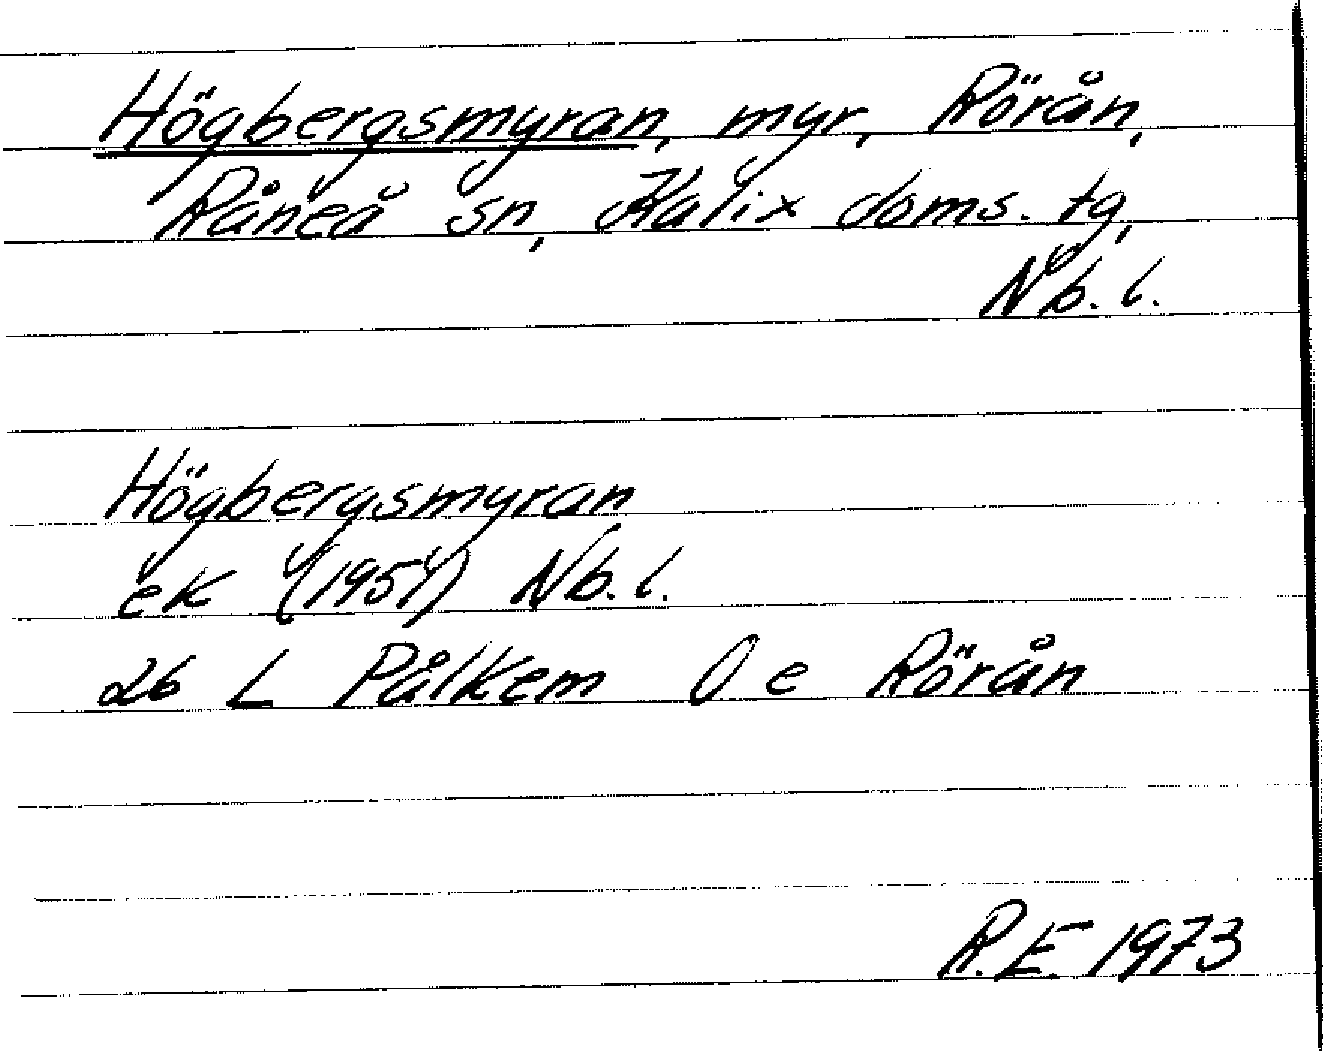 Högbergsmyran, myr, Rörån,
Råneå sn, Kalix doms. tg,
Nb. l.
Högbergsmyran
ek (1951) Nb. l.
26 L Pålkem 0 e Rörån
R.E. 1973